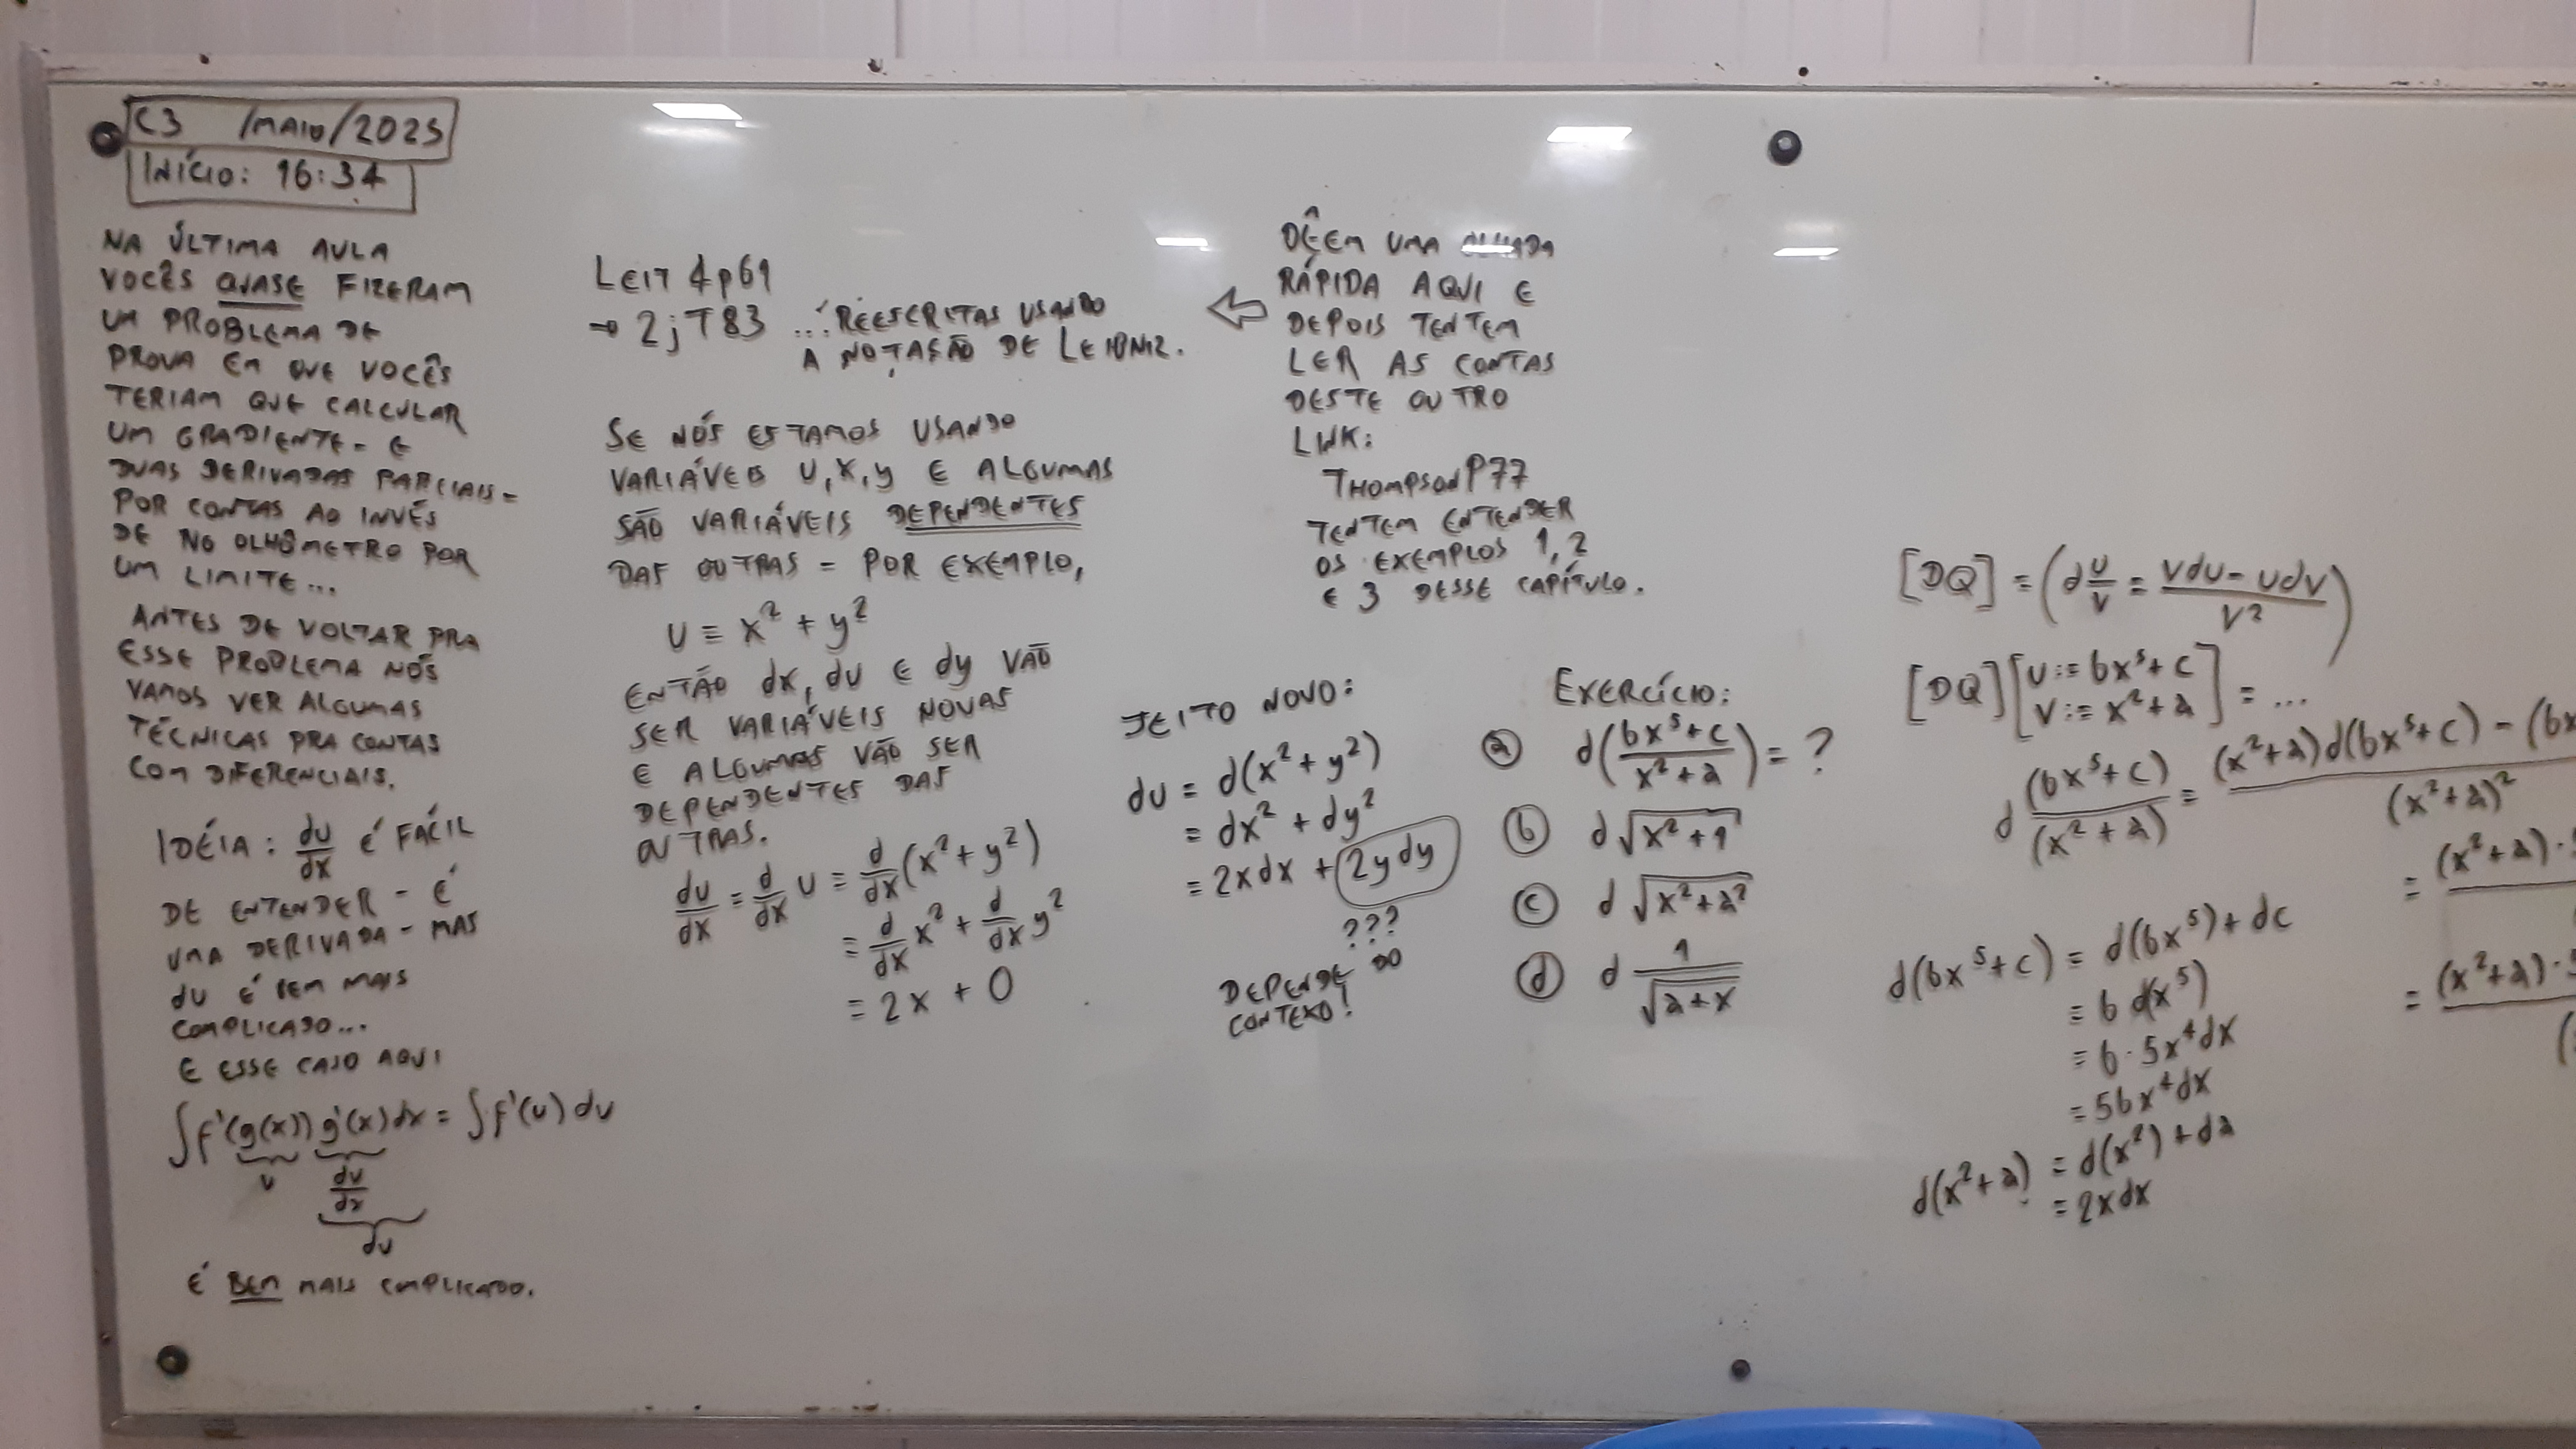 C3 /MAIO/2025
INÍCIO: 16:34
NA ÚLTIMA AULA
VOCÊS QUASE FIZERAM
UM PROBLEMA DE
PROVA EM QUE VOCÊS
TERIAM QUE CALCULAR
UM GRADIENTE - E
DUAS DERIVADAS PARCIAIS -
POR CONTAS AO INVÉS
DE NO OLHÔMETRO POR
UM LIMITE...
ANTES DE VOLTAR PRA
ESSE PROBLEMA NÓS
VAMOS VER ALGUMAS
TÉCNICAS PRA CONTAS
COM DIFERENCIAIS.
IDÉIA: du/dx É FÁCIL
DE ENTENDER - É
UMA DERIVADA - MAS
du É BEM MAIS
COMPLICADO...
E ESSE CASO AQUI
∫f'(g(x)) g'(x) dx = ∫f'(u) du
u
du/dx
du
É BEM MAIS COMPLICADO.
LEIT 4p61
→ 2jT83 ...: REESCRITAS USANDO
A NOTAÇÃO DE LEIBNIZ.
SE NÓS ESTAMOS USANDO
VARIÁVEIS u, x, y E ALGUMAS
SÃO VARIÁVEIS DEPENDENTES
DAS OUTRAS - POR EXEMPLO,
u = x² + y²
ENTÃO dx, du E dy VÃO
SER VARIÁVEIS NOVAS
E ALGUMAS VÃO SER
DEPENDENTES DAS
OUTRAS.
du/dx = d/dx u = d/dx (x² + y²)
= d/dx x² + d/dx y²
= 2x + 0
⇦ DÊEM UMA OLHADA
RÁPIDA AQUI E
DEPOIS TENTEM
LER AS CONTAS
DESTE OUTRO
LINK:
THOMPSONP77
TENTEM ENTENDER
OS EXEMPLOS 1, 2
E 3 DESSE CAPÍTULO.
JEITO NOVO:
du = d(x² + y²)
= dx² + dy²
= 2xdx + 2ydy
???
DEPENDE DO
CONTEXO!
EXERCÍCIO:
(a) d((bx⁵+c)/(x²+a)) = ?
(b) d√(x²+1)
(c) d√(x²+a²)
(d) d 1/√(a+x)
[DQ] = (d u/v = (vdu - udv)/v²)
[DQ][u := bx⁵+c
v := x²+a] = ...
d (bx⁵+c)/(x²+a) = (x²+a)d(bx⁵+c) - (bx
(x²+a)²
= (x²+a)·5
= (x²+a)·5
d(bx⁵+c) = d(bx⁵) + dc
= b d(x⁵)
= b·5x⁴dx
= 5bx⁴dx
d(x²+a) = d(x²) + da
= 2xdx